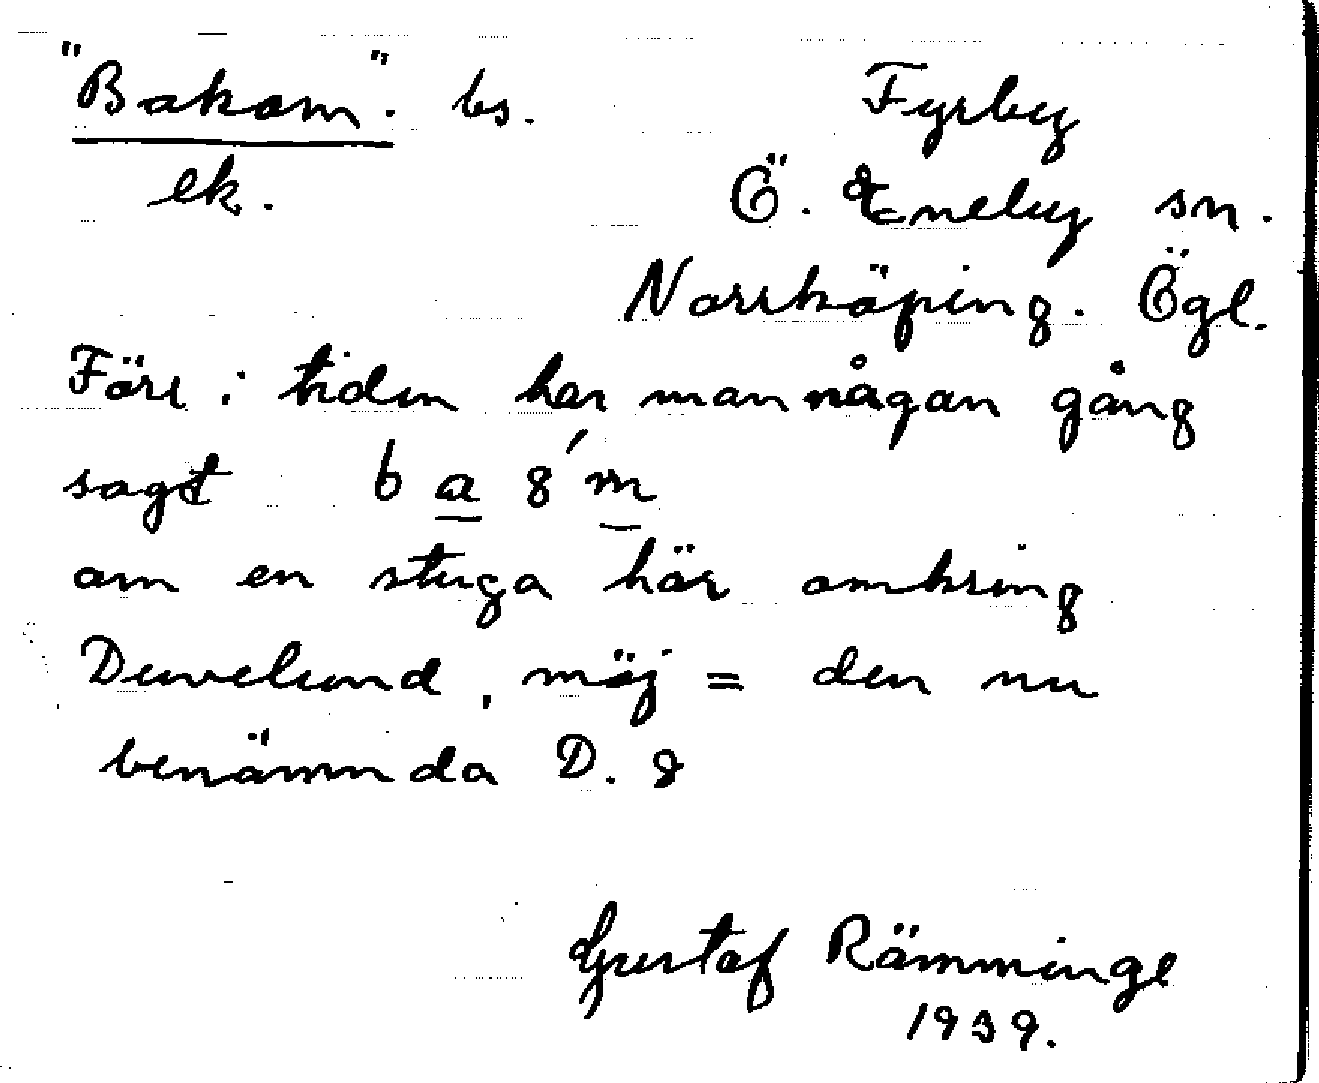 "Bakom". bs. Fyrby
ek. Ö. Eneby sn.
Norrköping. Ögl.
Förr i tiden har man någon gång
sagt
om en stuga här omkring
Duvelund, möj = den nu
benämnda D. 8
Gustaf Rämminge
1939.